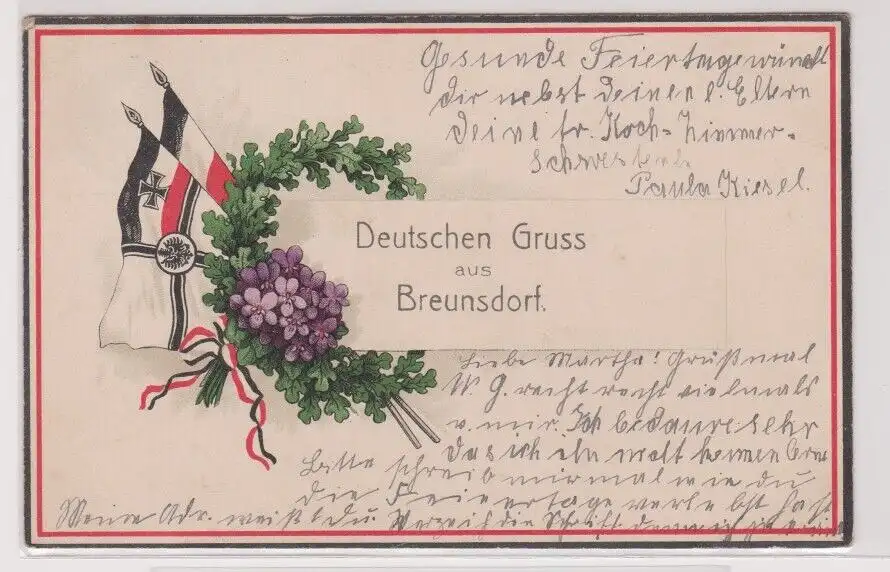 Gesunde Feiertage wünscht
dir nebst deinen l. Eltern
deine fr. Koch-Zimmer-
schwester
Paula Kiesel.
Deutschen Gruss
aus
Breunsdorf.
Liebe Martha! Grüß mal
W. G. recht recht vielmals
v. mir. Ich bedaure sehr
das ich ihn nicht kennen
Bitte schreib mir mal wie du
die Feiertage verlebst hast
Meine Adr. weißt du. Verzeih die Schrift